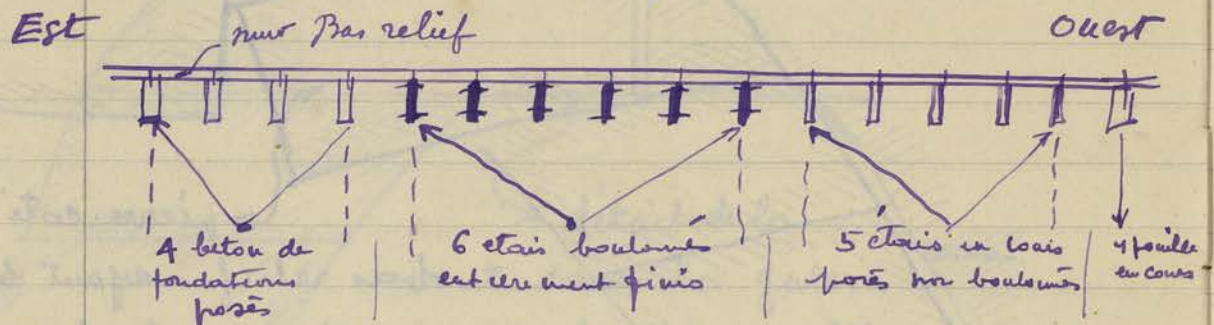 Est
Ouest
mur Bas relief
4 beton de
fondations
posés
6 etais boulonnés
entierement finis
5 étais en cours
posés non boulonnés
1 fouille
en cours